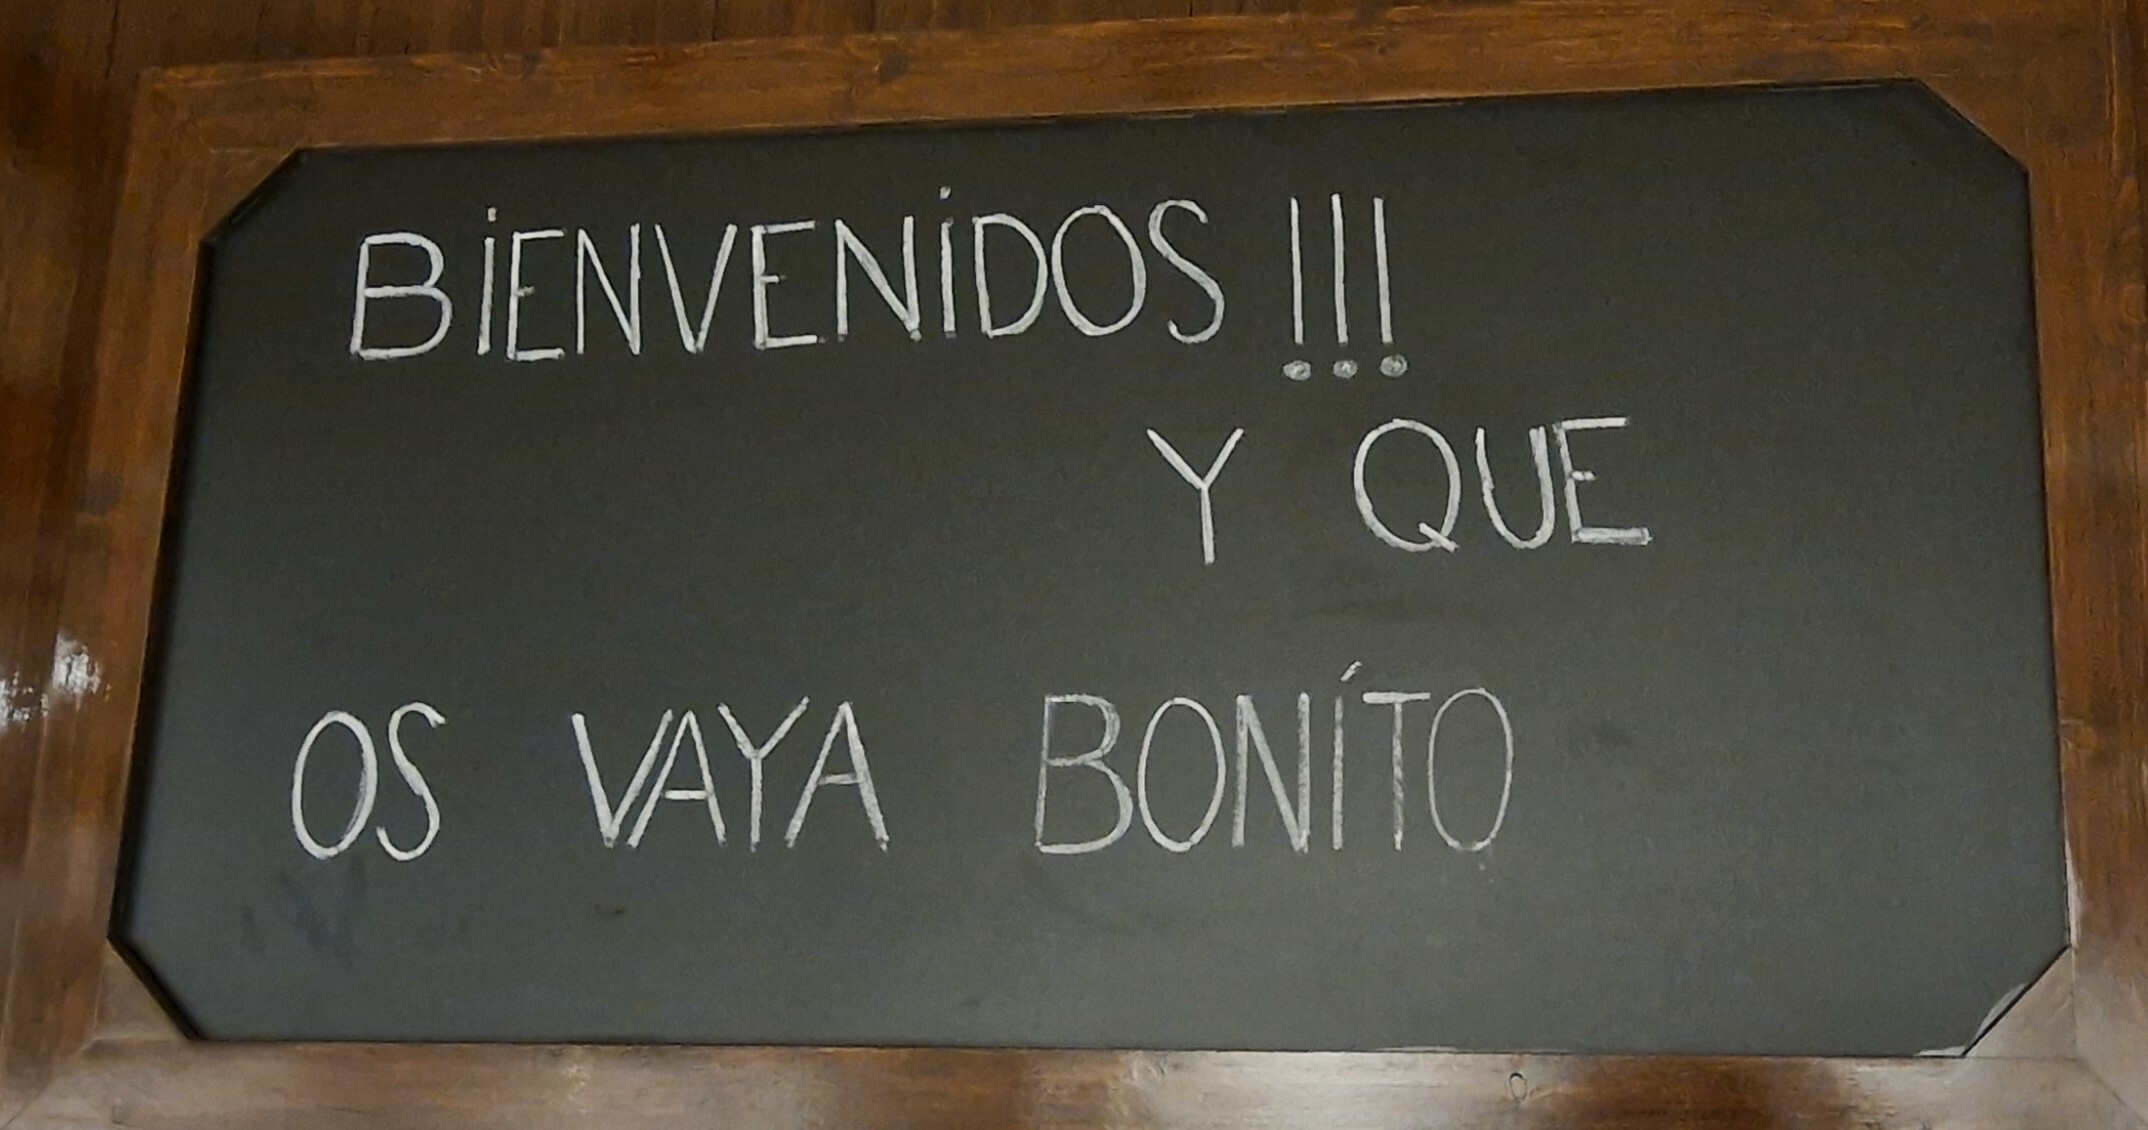 BiENVENiDOS !!!
Y QUE
OS VAYA BONÍTO